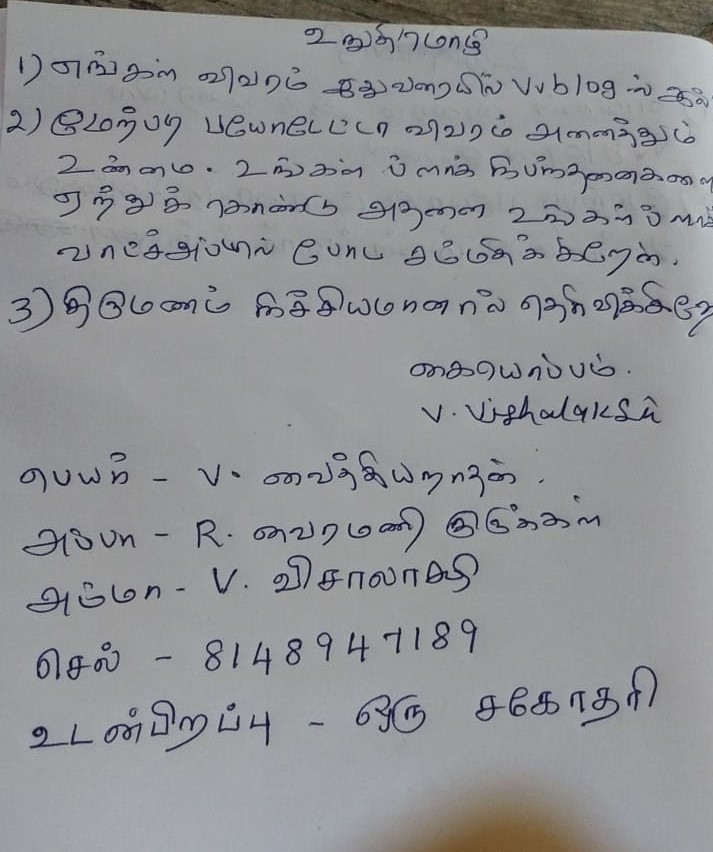 உறுதிமொழி
1) எங்கள் விவரம் இதுவரையில் Vvblog ல் இல்
2) மேற்படி பயோடேட்டா விவரம் அனைத்தும்
உண்மை. உங்கள் ப்ளாக் நிபந்தனைகளை
ஏற்றுக் கொண்டு அதனை உங்கள் ப்ளாக்
வாட்ச்அப்பில் போட சம்மதிக்கிறேன்.
3) திருமணம் நிச்சியமானால் தெரிவிக்கிறே
கையொப்பம்.
V. Vishalakshi
பெயர் - V. வைத்தியநாதன்.
அப்பா - R. வைரமணி குருக்கள்
அம்மா - V. விசாலாக்ஷி
செல் - 8148947189
உடன்பிறப்பு - ஒரு சகோதரி